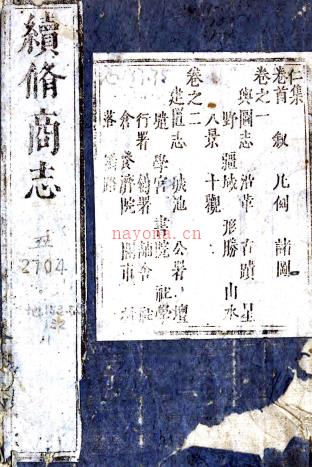 續脩商志
五
2704
仁集
卷首 叙 凡例 諸圖
卷之一
輿圖志 沿革 古蹟 星
野 疆域 形勝 山水
八景 十觀
卷之二
建置志 城池 公署 壇
壝 學宮 書院 社學
行署 舖舍
倉 養濟院 關市 村
落
nayona.cn